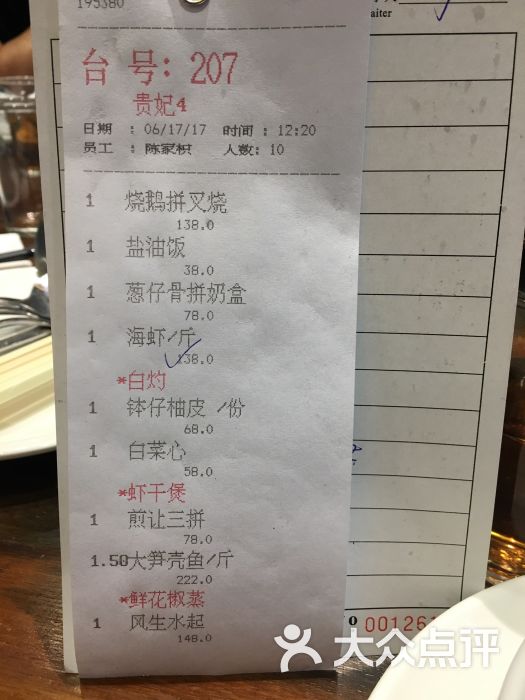 195380
aiter
台 号: 207
贵妃4
日期 : 06/17/17 时间 : 12:20
员工 : 陈家枳 人数: 10
1 烧鹅拼叉烧
138.0
1 盐油饭
38.0
1 葱仔骨拼奶盒
78.0
1 海虾/斤
138.0
*白灼
1 钵仔柚皮 /份
68.0
1 白菜心
58.0
*虾干煲
1 煎让三拼
78.0
1.50大笋壳鱼/斤
222.0
*鲜花椒蒸
1 风生水起
148.0
00126
大众点评